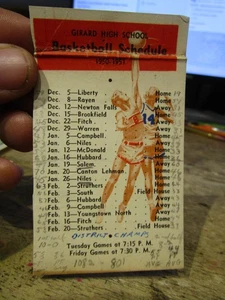 GIRARD HIGH SCHOOL
Basketball Schedule
1950-1951
Dec. 5—Liberty Home
Dec. 8—Rayen Home
Dec. 12—Newton Falls Away
Dec. 15—Brookfield Home
Dec. 22—Fitch Away
Dec. 29—Warren Away
Jan. 5—Campbell Home
Jan. 6—Niles Away
Jan. 12—McDonald Home
Jan. 16—Hubbard Away
Jan. 19—Salem Away
Jan. 20—Canton Lehman Home
Jan. 26—Niles Home
Feb. 2—Struthers Home
Feb. 3—South Field House
Feb. 6—Hubbard Home
Feb. 9—Campbell Away
Feb. 13—Youngstown North Away
Feb. 16—Fitch Home
Feb. 20—Struthers Field House
14
DISTRICT CHAMP
Tuesday Games at 7:15 P. M.
Friday Games at 7:30 P. M.